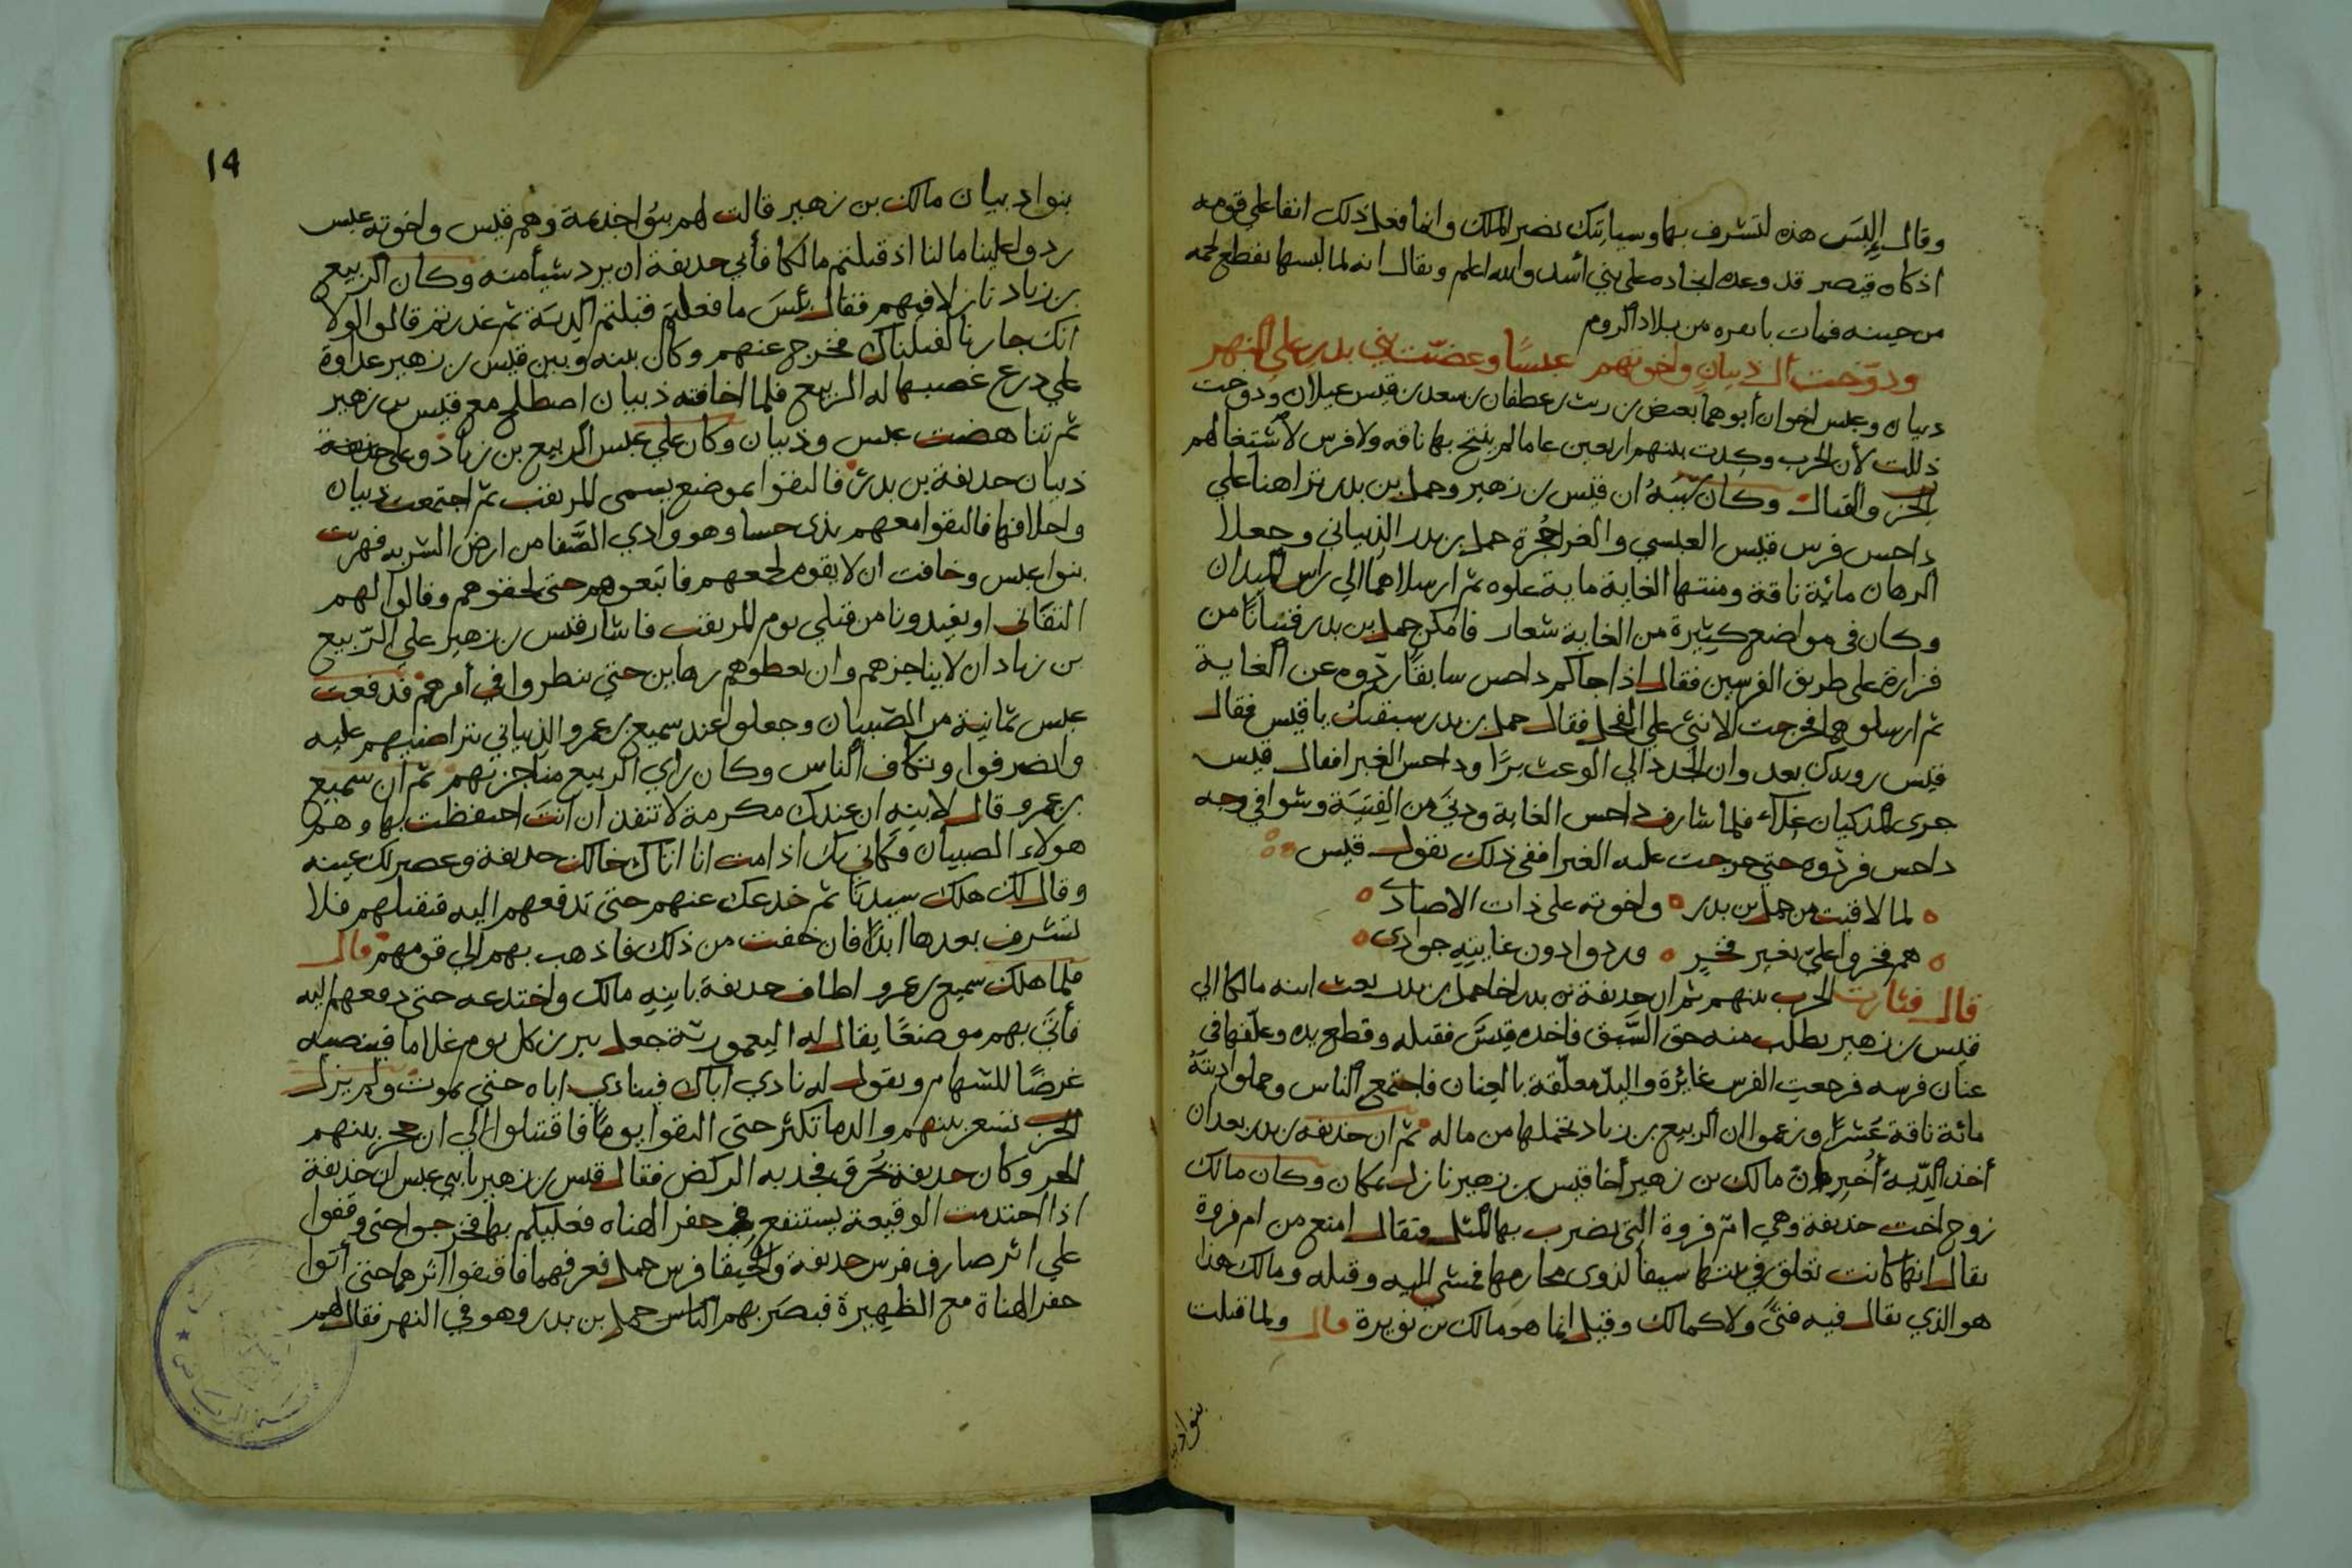 وقال إلبس هذه لتشرف بها وسيأتيك نصر الملك وانما فعل ذلك انفا علي قومه
اذ كان قيصر قد وعده انجاده علي بني أسد والله اعلم ويقال انه لما لبسها تقطع لحمه
من حينه فمات بانقره من بلاد الروم
ودوّخت آل ذبيان واخوتهم عبسًا وعضّت بني بدر علي النهر
ذبيان وعبس اخوان أبوهما بغيض بن ريث بن غطفان بن سعد بن قيس عيلان ودوخت
ذللت لأن الحرب وكدت بينهم اربعين عاما لم ينتج بها ناقه ولا فرس لاشتغالهم
بالحرب والقتال وكان سَبَبُهُ ان قيس بن زهير وحمل بن بدر تراهنا علي
داحس فرس قيس العبسي والغبرا حُجرة حمل بن بدر الذبياني وجعلا
الرهان مائة ناقة ومنتها الغاية ماية غلوه ثم ارسلاهما الي راس الميدان
وكان في مواضع كثيرة من الغاية شعار فامكن حمل بن بدر فتيانا من
فزارة علي طريق الفرسين فقال اذا جاكم داحس سابقًا ردّوه عن الغاية
ثم ارسلوهما فخرجت الانثي علي الفحل فقال حمل بن بدر سبقتك يا قيس فقال
قيس رويدك بعد وان الجدد الي الوعث برًّا وداحس الغبرا فقال قيس
جرى المذكيان غلاء فلما شارف داحس الغاية ودنَي من الفتية وشوا في وجه
داحس فردّوه حتي خرجت عليه الغبرا ففي ذلك يقول قيس
لما لاقيت من حمل بن بدر ٥ واخوته علي ذات الاصاد
هم فخروا عليّ بغير فخرٍ ٥ وردوا دون غايتِهِ جوادى
قال فثارت الحرب بينهم ثم ان حذيفة بن بدر اخا حمل بن بدر بعث ابنه مالكا الي
قيس بن زهير يطلب منه حق السَّبق فاخذه قيسٌ فقتله وقطع يده وعلّقها في
عنان فرسه فرجعت الفرس غائرة واليدّ معلّقة بالعنان فاجتمع الناس وحملوا ديتَهُ
مائة ناقة عُشرًا وزعموا ان الربيع بن زياد تحملها من ماله ثم ان حذيفه بن بدر بعد ان
أخذ الدّية أُخبر بان مالك بن زهير أخا قيس بن زهير نازل بمكان وكان مالك
زوج اخت حذيفة وهي امّ فروة التي يضرب بها المثل فيقال امنع من ام فروة
يقال انها كانت تعلق في بيتها سيفا لذوي محارمها فمشي اليه وقتله ومالك هذا
هو الذي يقال فيه فتًي ولا كمالك وقيل انما هو مالك بن نويرة قال ولما قتلت
بنواد
14
بنوا ذبيان مالك بن زهير قالت لهم بنُوا جذيمة وهم قيس واخوته عبس
ردوا علينا مالنا اذ قتلتم مالكا فأبي حذيفة ان يرد شيأ منه وكان الربيع
بن زياد نازلا فيهم فقال بئسَ ما فعلتم قبلتم الدية ثم غدرتم قالوا لولا
انك جارنا لقتلناك فخرج عنهم وكان بينه وبين قيس بن زهير عداوة
علي درع غصبها له الربيع فلما اخافته ذبيان اصطلح مع قيس بن زهير
ثم تناهضت عبس وذبيان وكان علي عبس الربيع بن زياد وعلي
ذبيان حذيفة بن بدر فالتقوا بموضع يسمى المريقب ثم اجتمعت ذبيان
واحلافها فالتقوا معهم بذى حسا وهو وادي الصَّفا من ارض الشربه فهربت
بنوا عبس وخافت ان لا يقوم لجمعهم فاتبعوهم حتي لحقوهم وقالوا لهم
التفاني او تقيدونا من قتلي يوم المريقب فاشار قيس بن زهير علي الرّبيع
بن زياد ان لا يناجزهم وان يعطوهم رهاين حتي ينظروا في أمرهم فدفعت
عبس ثمانية من الصّبيان وجعلوا عند سميع بن عمرو الذبياني بتراضيهم عليه
وانصرفوا وتكاف الناس وكان رأي الربيع مناجزتهم ثم ان سميع
بن عمرو قال لابنِهِ ان عندك مكرمة لا تنفد ان انتَ احتفظت بها وهم
هولاء الصبيان فكاني بك اذا مت انا اتاك خالك حذيفة وعصر لك عينه
وقال لك هلك سيدنا ثم خدعك عنهم حتي تدفعهم اليه فيقتلهم فلا
تشرف بعدها ابدًا فان خفت من ذلك فاذهب بهم الي قومهم قال
فلما هلك سميع بن عمرو اطاف حذيفة بابنِهِ مالك واختدعه حتي دفعهم اليه
فأتَي بهم موضعًا يقال له اليعمورية جعل يبرز كل يوم غلاما فينصبه
غرضًا للسّهام ويقول له نادي اباك فينادي اباه حتي يموت ولم يزل
الحرب تستعر بينهم والدما تكثر حتي التقوا يومًا فاقتتلوا الي ان حجز بينهم
الحر وكان حذيفة تُحرق فخذيه الركض فقال قيس بن زهير يا بني عبس ان حذيفة
اذا احتدمت الوقيعة يستنقع في حفر الهناه فعليكم بها فخرجوا حتي وقفوا
علي اثر صارف فرس حذيفة والحيفا فرس حمل فعرفهما فاقتفوا اثرهما حتي أتوا
حفر الهناة مع الظهيرة فبصَر بهم الناس حمل بن بدر وهو في النهر فقال لهم